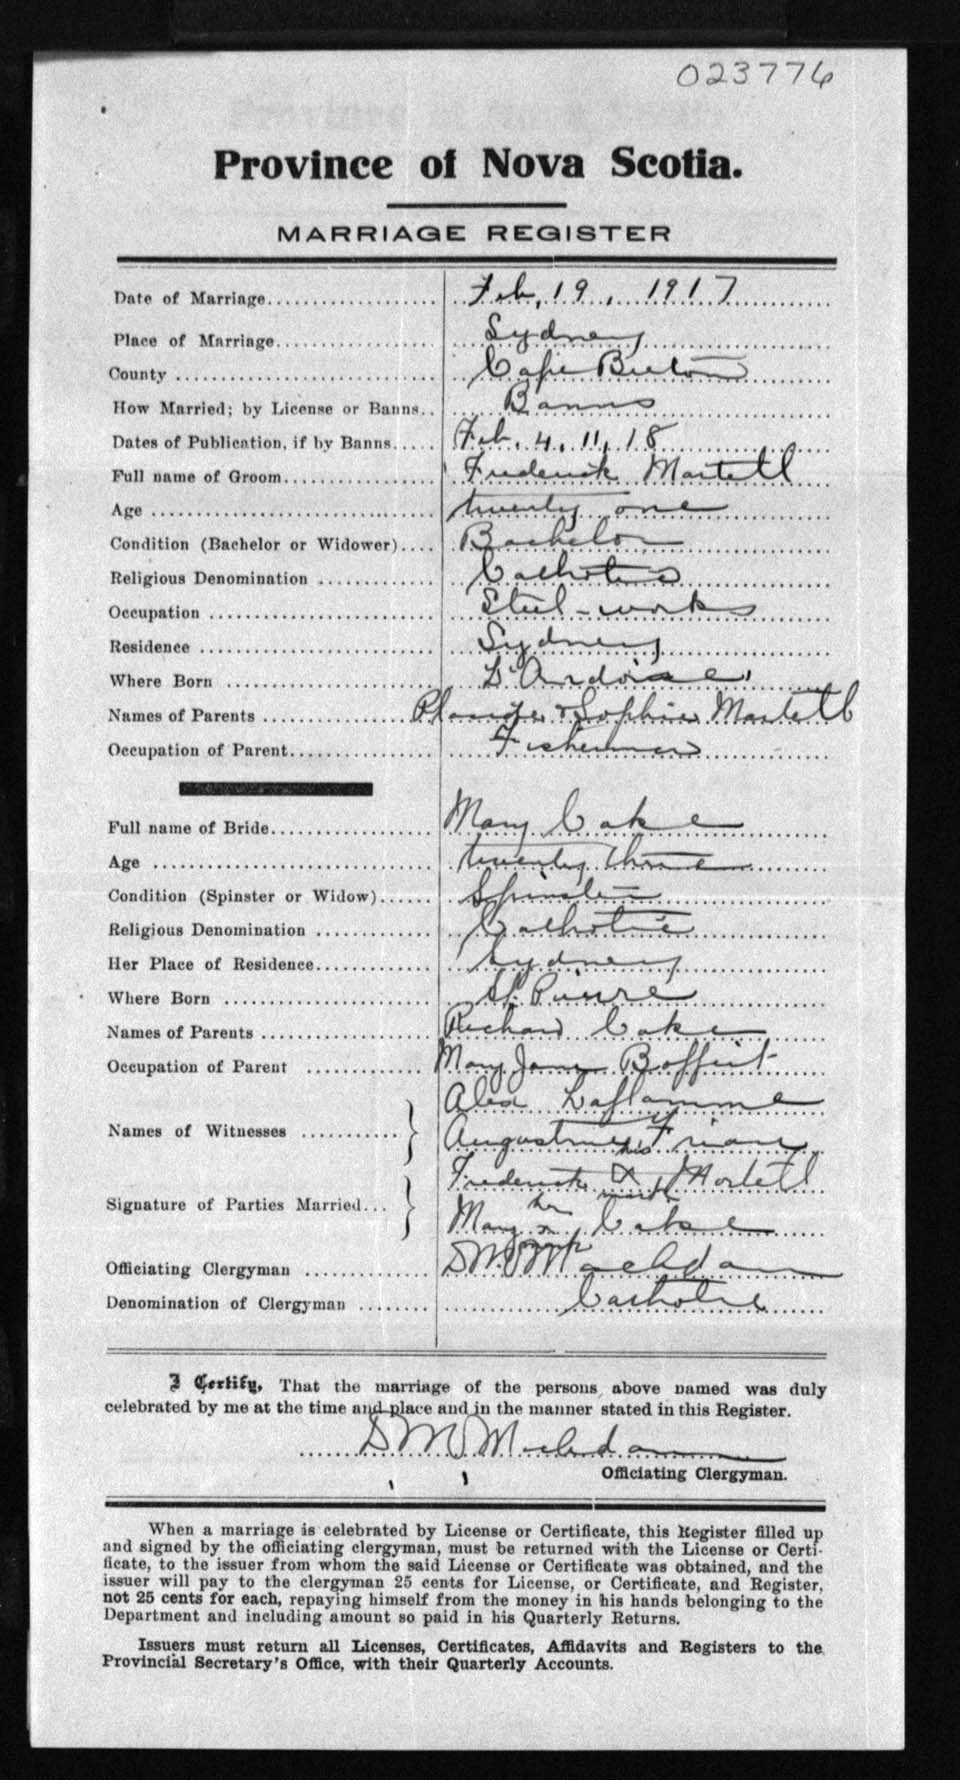 023776
Province of Nova Scotia.
MARRIAGE REGISTER
Date of Marriage Feb, 19, 1917
Place of Marriage Sydney
County Cape Breton
How Married; by License or Banns Banns
Dates of Publication, if by Banns Feb. 4, 11, 18
Full name of Groom Frederick Martell
Age twenty one
Condition (Bachelor or Widower) Bachelor
Religious Denomination Catholic
Occupation Steel-works
Residence Sydney
Where Born L'Ardoise
Names of Parents & Sophie Martell
Occupation of Parent Fisherman
Full name of Bride Mary Cake
Age twenty three
Condition (Spinster or Widow) Spinster
Religious Denomination Catholic
Her Place of Residence Sydney
Where Born St. Pierre
Names of Parents Richard Cake
Occupation of Parent Mary Jane
Names of Witnesses Alex Laflamme
Augustine
Signature of Parties Married Frederick his X mark Martell
Mary her x mark Cake
Officiating Clergyman
Denomination of Clergyman Catholic
I Certify, That the marriage of the persons above named was duly
celebrated by me at the time and place and in the manner stated in this Register.
Officiating Clergyman.
When a marriage is celebrated by License or Certificate, this Register filled up
and signed by the officiating clergyman, must be returned with the License or Certi-
ficate, to the issuer from whom the said License or Certificate was obtained, and the
issuer will pay to the clergyman 25 cents for License, or Certificate, and Register,
not 25 cents for each, repaying himself from the money in his hands belonging to the
Department and including amount so paid in his Quarterly Returns.
Issuers must return all Licenses, Certificates, Affidavits and Registers to the
Provincial Secretary's Office, with their Quarterly Accounts.